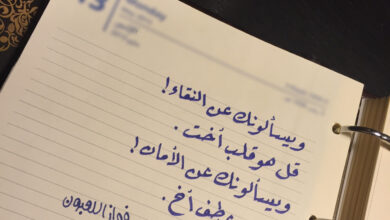 Monday
ويسألونك عن النقاء!
قل هو قلب أخت.
ويسألونك عن الأمان!
أخ.
فواز اللعبون